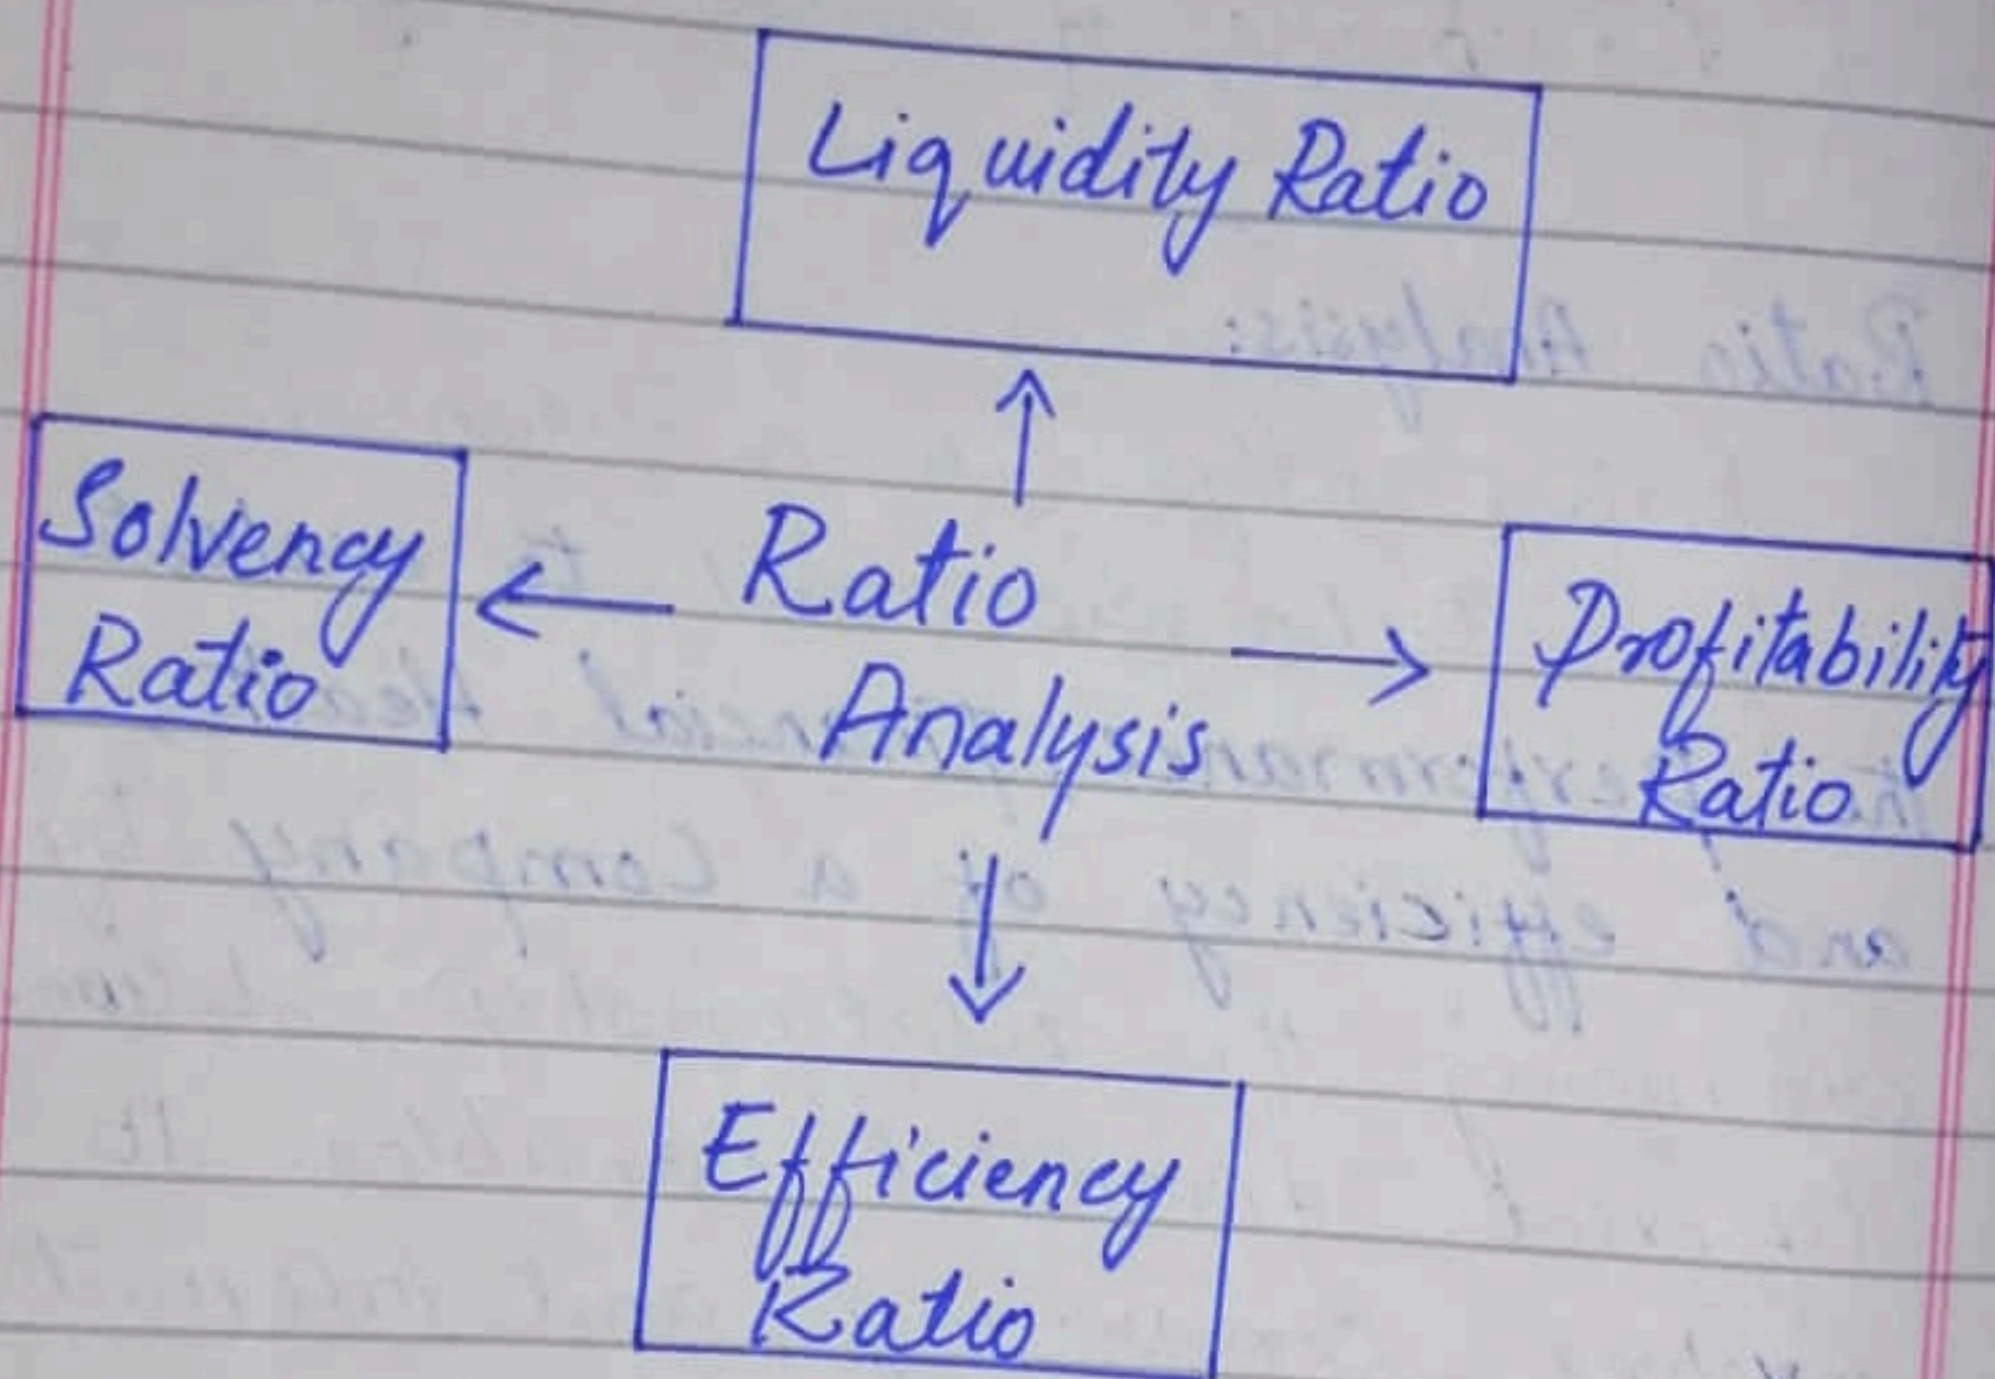 Liquidity Ratio
Solvency
Ratio
Ratio
Analysis
Profitability
Ratio
Efficiency
Ratio